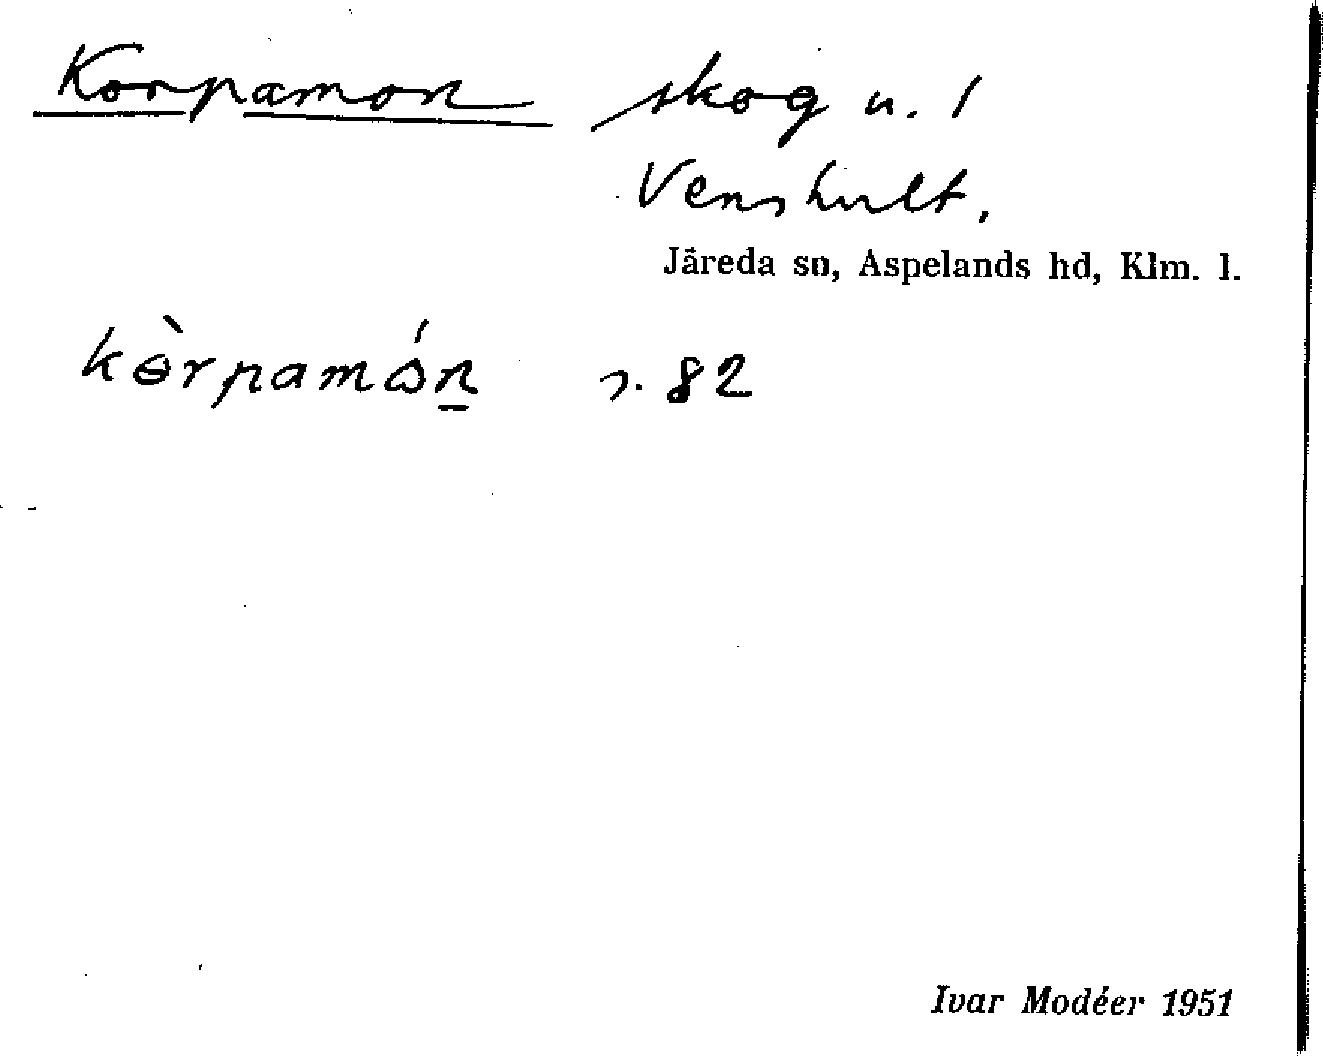 Korpamon skog u. 1
Venshult.
Järeda sn, Aspelands hd, Klm. l.
kɵ̀rpamón̲ s. 82
Ivar Modéer 1951